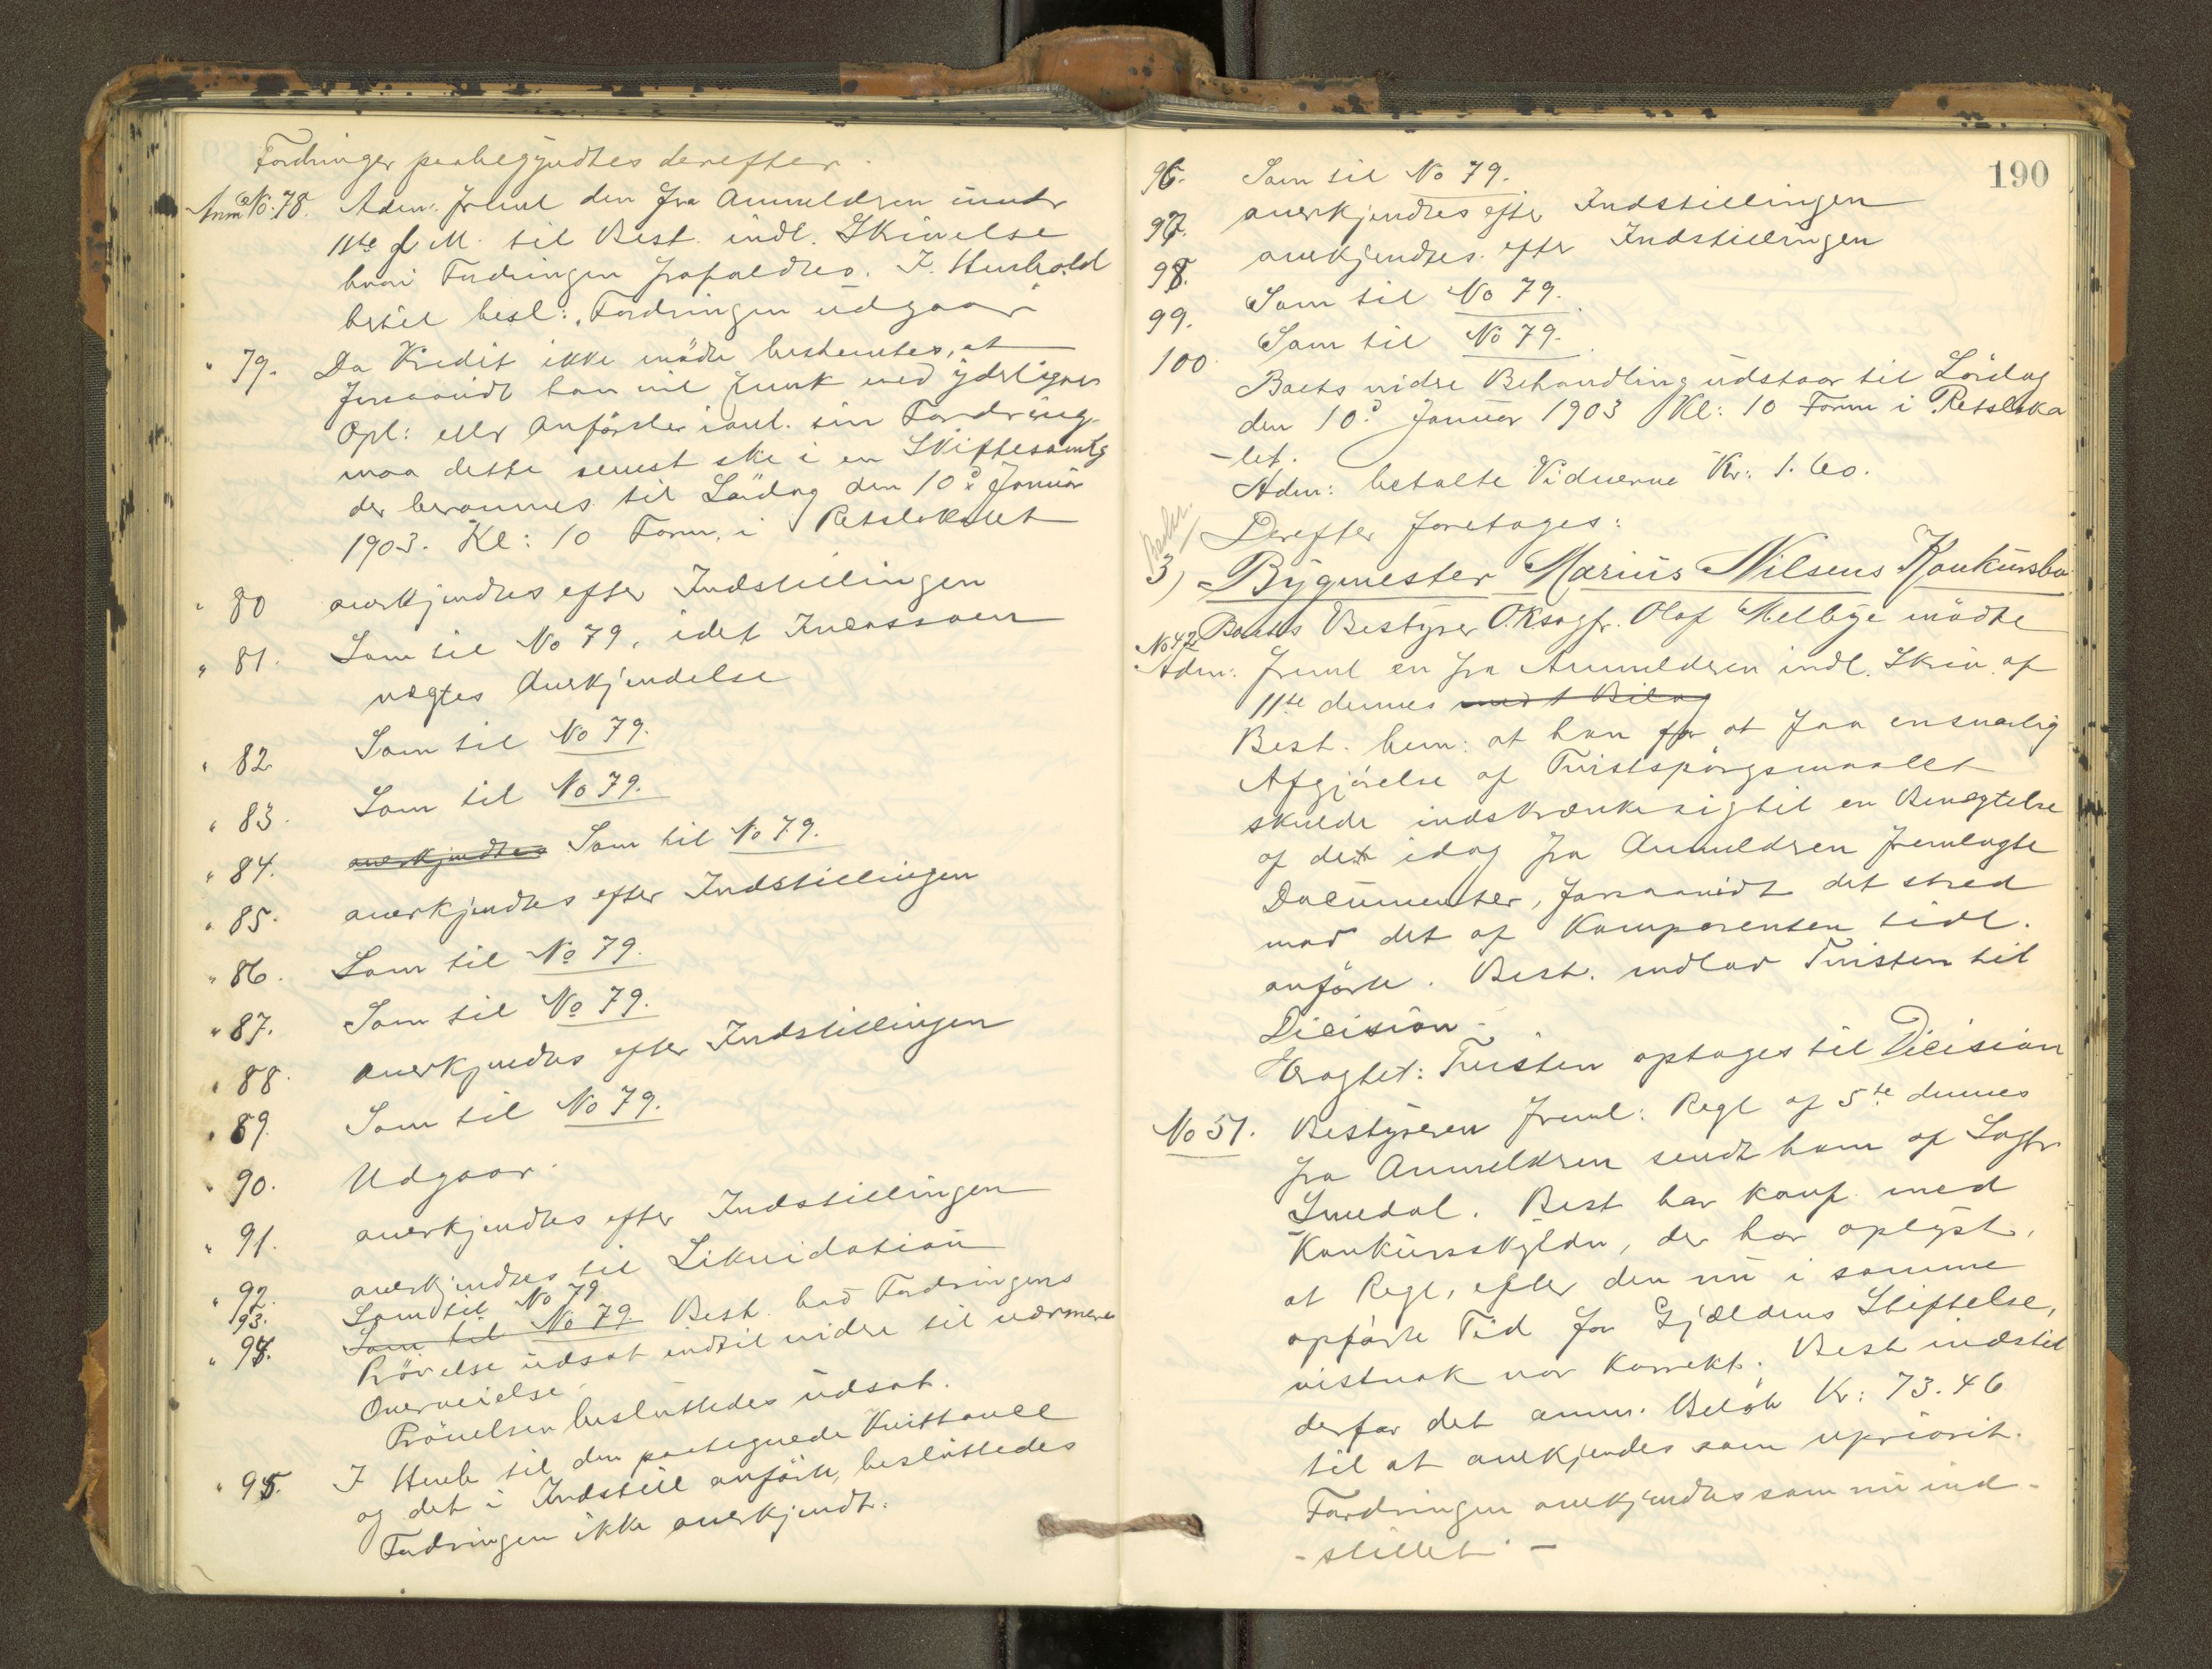 Fordringer paabegyndtes derefter.
Anm. No. 78. Adm. freml den fra Anmelderen under
11te d. M. til Best. indl. Skrivelse
hvori Fordringen frafaldtes. I Henhold
hertil besl: "Fordringen udgaar"
" 79. Da Kredit ikke mödte bestemtes, at
forsaavidt han vil frmk med yderligere
Opl: eller Anförsler i anl. sin Fordring
maa dette senest ske i en Skiftesamlg
der berammes til Lördag den 10de Januar
1903. Kl: 10 Form. i Retslokalet
" 80 anerkjendtes efter Indstillingen
" 81. Som til No 79, idet Incassoen
nægtes Anerkjendelse
" 82 Som til No 79.
" 83. Som til No 79.
" 84. anerkjendtes Som til No 79.
" 85. anerkjendtes efter Indstillingen
" 86. Som til No 79.
" 87. Som til No 79.
" 88. anerkjendtes efter Indstillingen
" 89. Som til No 79.
" 90. Udgaar.
" 91. anerkjendtes efter Indstillingen
" 92. anerkjendtes til Likvidation
93. Som til No 79
" 94. Som til No 79 Best. bad Fordringens
Prövelse udsat indtil videre til nærmere
Overveielse.
Prövelsen besluttedes udsat.
" 95. I Henh til den paategnede Kvittance
og det i Indstill anförte, besluttedes
Fordringen ikke anerkjendt.
190
96. Som til No 79.
97. anerkjendtes efter Indstillingen
98. anerkjendtes efter Indstillingen
99. Som til No 79.
100 Som til No 79.
Boets vidre Behandling udstaar til Lördag
den 10de Januar 1903 Kl: 10 Form i Retsloka
-let.
Adm: betalte Vidnerne Kr: 1.60.
Derefter foretages:
3) Bygmester Marius Nilsens Konkursbo
Boets Bestyrer O.Ksagfr. Olaf Melbye mödte
No 42
Adm: freml en fra Anmelderen indl. Skriv. af
11te dennes med 1 Bilag
Best. bem: at han for at faa en snarlig
Afgjörelse af Tvistspörgsmaalet
skulde indskrænke sig til en Benægtelse
af de idag fra Anmelderen fremlagte
Documenter, forsaavidt det stred
mod det af Komparenten tidl.
anförte. Best. indlod Tvisten til
Dicision -
Eragtet: Tvisten optages til Dicision
No 51. Bestyreren freml: Regl af 5te dennes
fra Anmelderen sendt ham af Sagfr.
Smedal. Best har konf. med
Konkursskyldn, der har oplyst,
at Regl, efter den nu i samme
opförte Tid for Gjældens Stiftelse,
vistnok var korrekt. Best indstil
derfor det anm. Belöb Kr: 73.46
til at anerkjendes som upriorit.
Fordringen anerkjendtes som nu ind-
-stillet. -